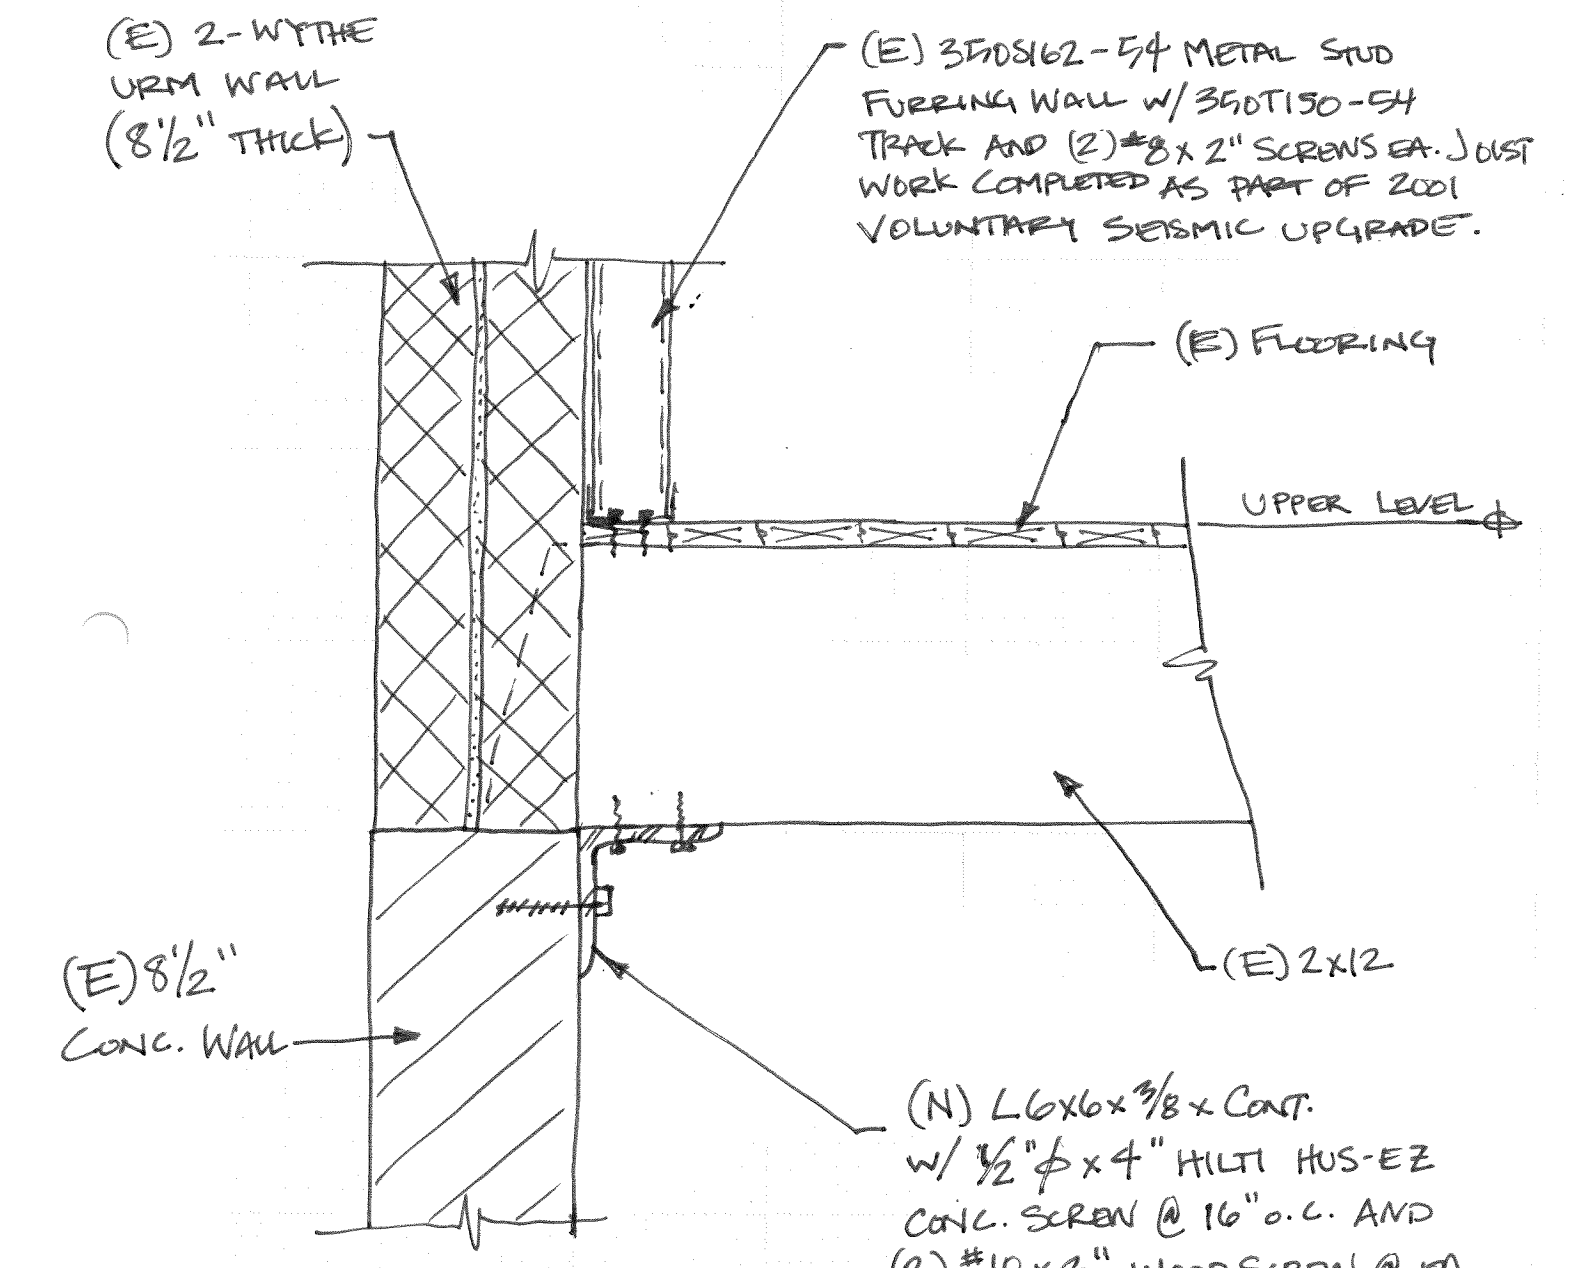 (E) 2-WYTHE
URM WALL
(8 1/2" THICK)
(E) 350S162-54 METAL STUD
FURRING WALL W/ 350T150-54
TRACK AND (2) #8 x 2" SCREWS EA. JOIST
WORK COMPLETED AS PART OF 2001
VOLUNTARY SEISMIC UPGRADE.
(E) FLOORING
UPPER LEVEL
(E) 2x12
(E) 8 1/2"
CONC. WALL
(N) L6x6x3/8 x CONT.
W/ 1/2"ϕ x 4" HILTI HUS-EZ
CONC. SCREW @ 16" O.C. AND
(2) #10 x 2" WOOD SCREW @ EA.